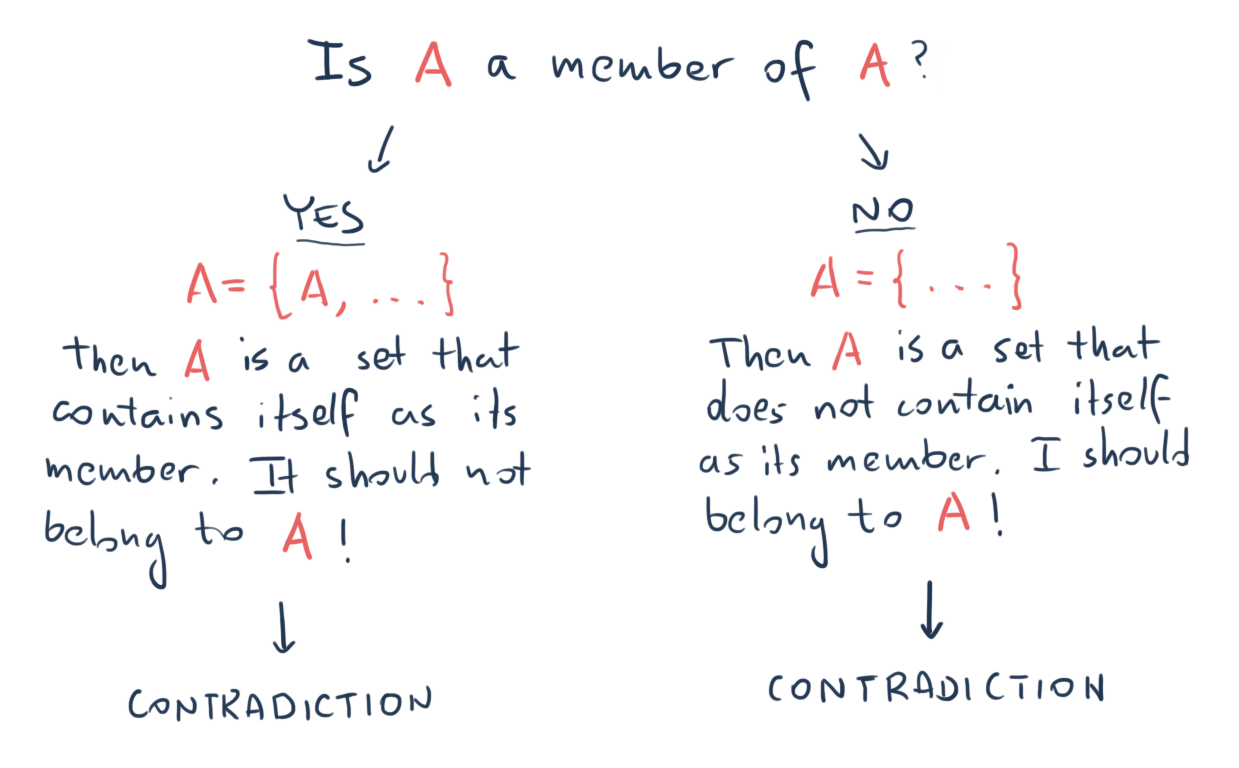 Is A a member of A?
YES
A = {A, ...}
Then A is a set that
contains itself as its
member. It should not
belong to A!
CONTRADICTION
NO
A = {...}
Then A is a set that
does not contain itself
as its member. I should
belong to A!
CONTRADICTION